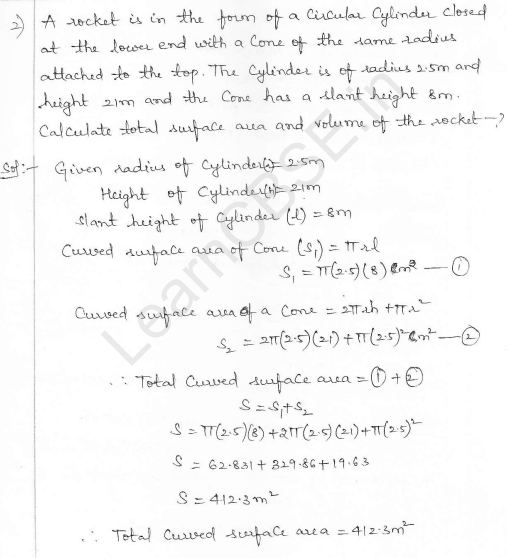 2) A rocket is in the form of a Circular Cylinder Closed
at the lower end with a Cone of the same radius
attached to the top. The Cylinder is of radius 2.5m and
height 21m and the Cone has a slant height 8m.
Calculate total surface area and volume of the rocket-?
Sol:- Given radius of Cylinder(r)= 2.5m
Height of Cylinder(h)= 21m
slant height of Cylinder (l) = 8m
Curved surface area of Cone (S₁) = πrl
S₁ = π(2.5)(8) m² — ①
Curved surface area of a Cone = 2πrh + πr²
S₂ = 2π(2.5)(21) + π(2.5)² m² — ②
∴ Total Curved surface area = ① + ②
S = S₁ + S₂
S = π(2.5)(8) + 2π(2.5)(21) + π(2.5)²
S = 62.831 + 329.86 + 19.63
S = 412.3m²
∴ Total Curved surface area = 412.3m²
LearnCBSE.in